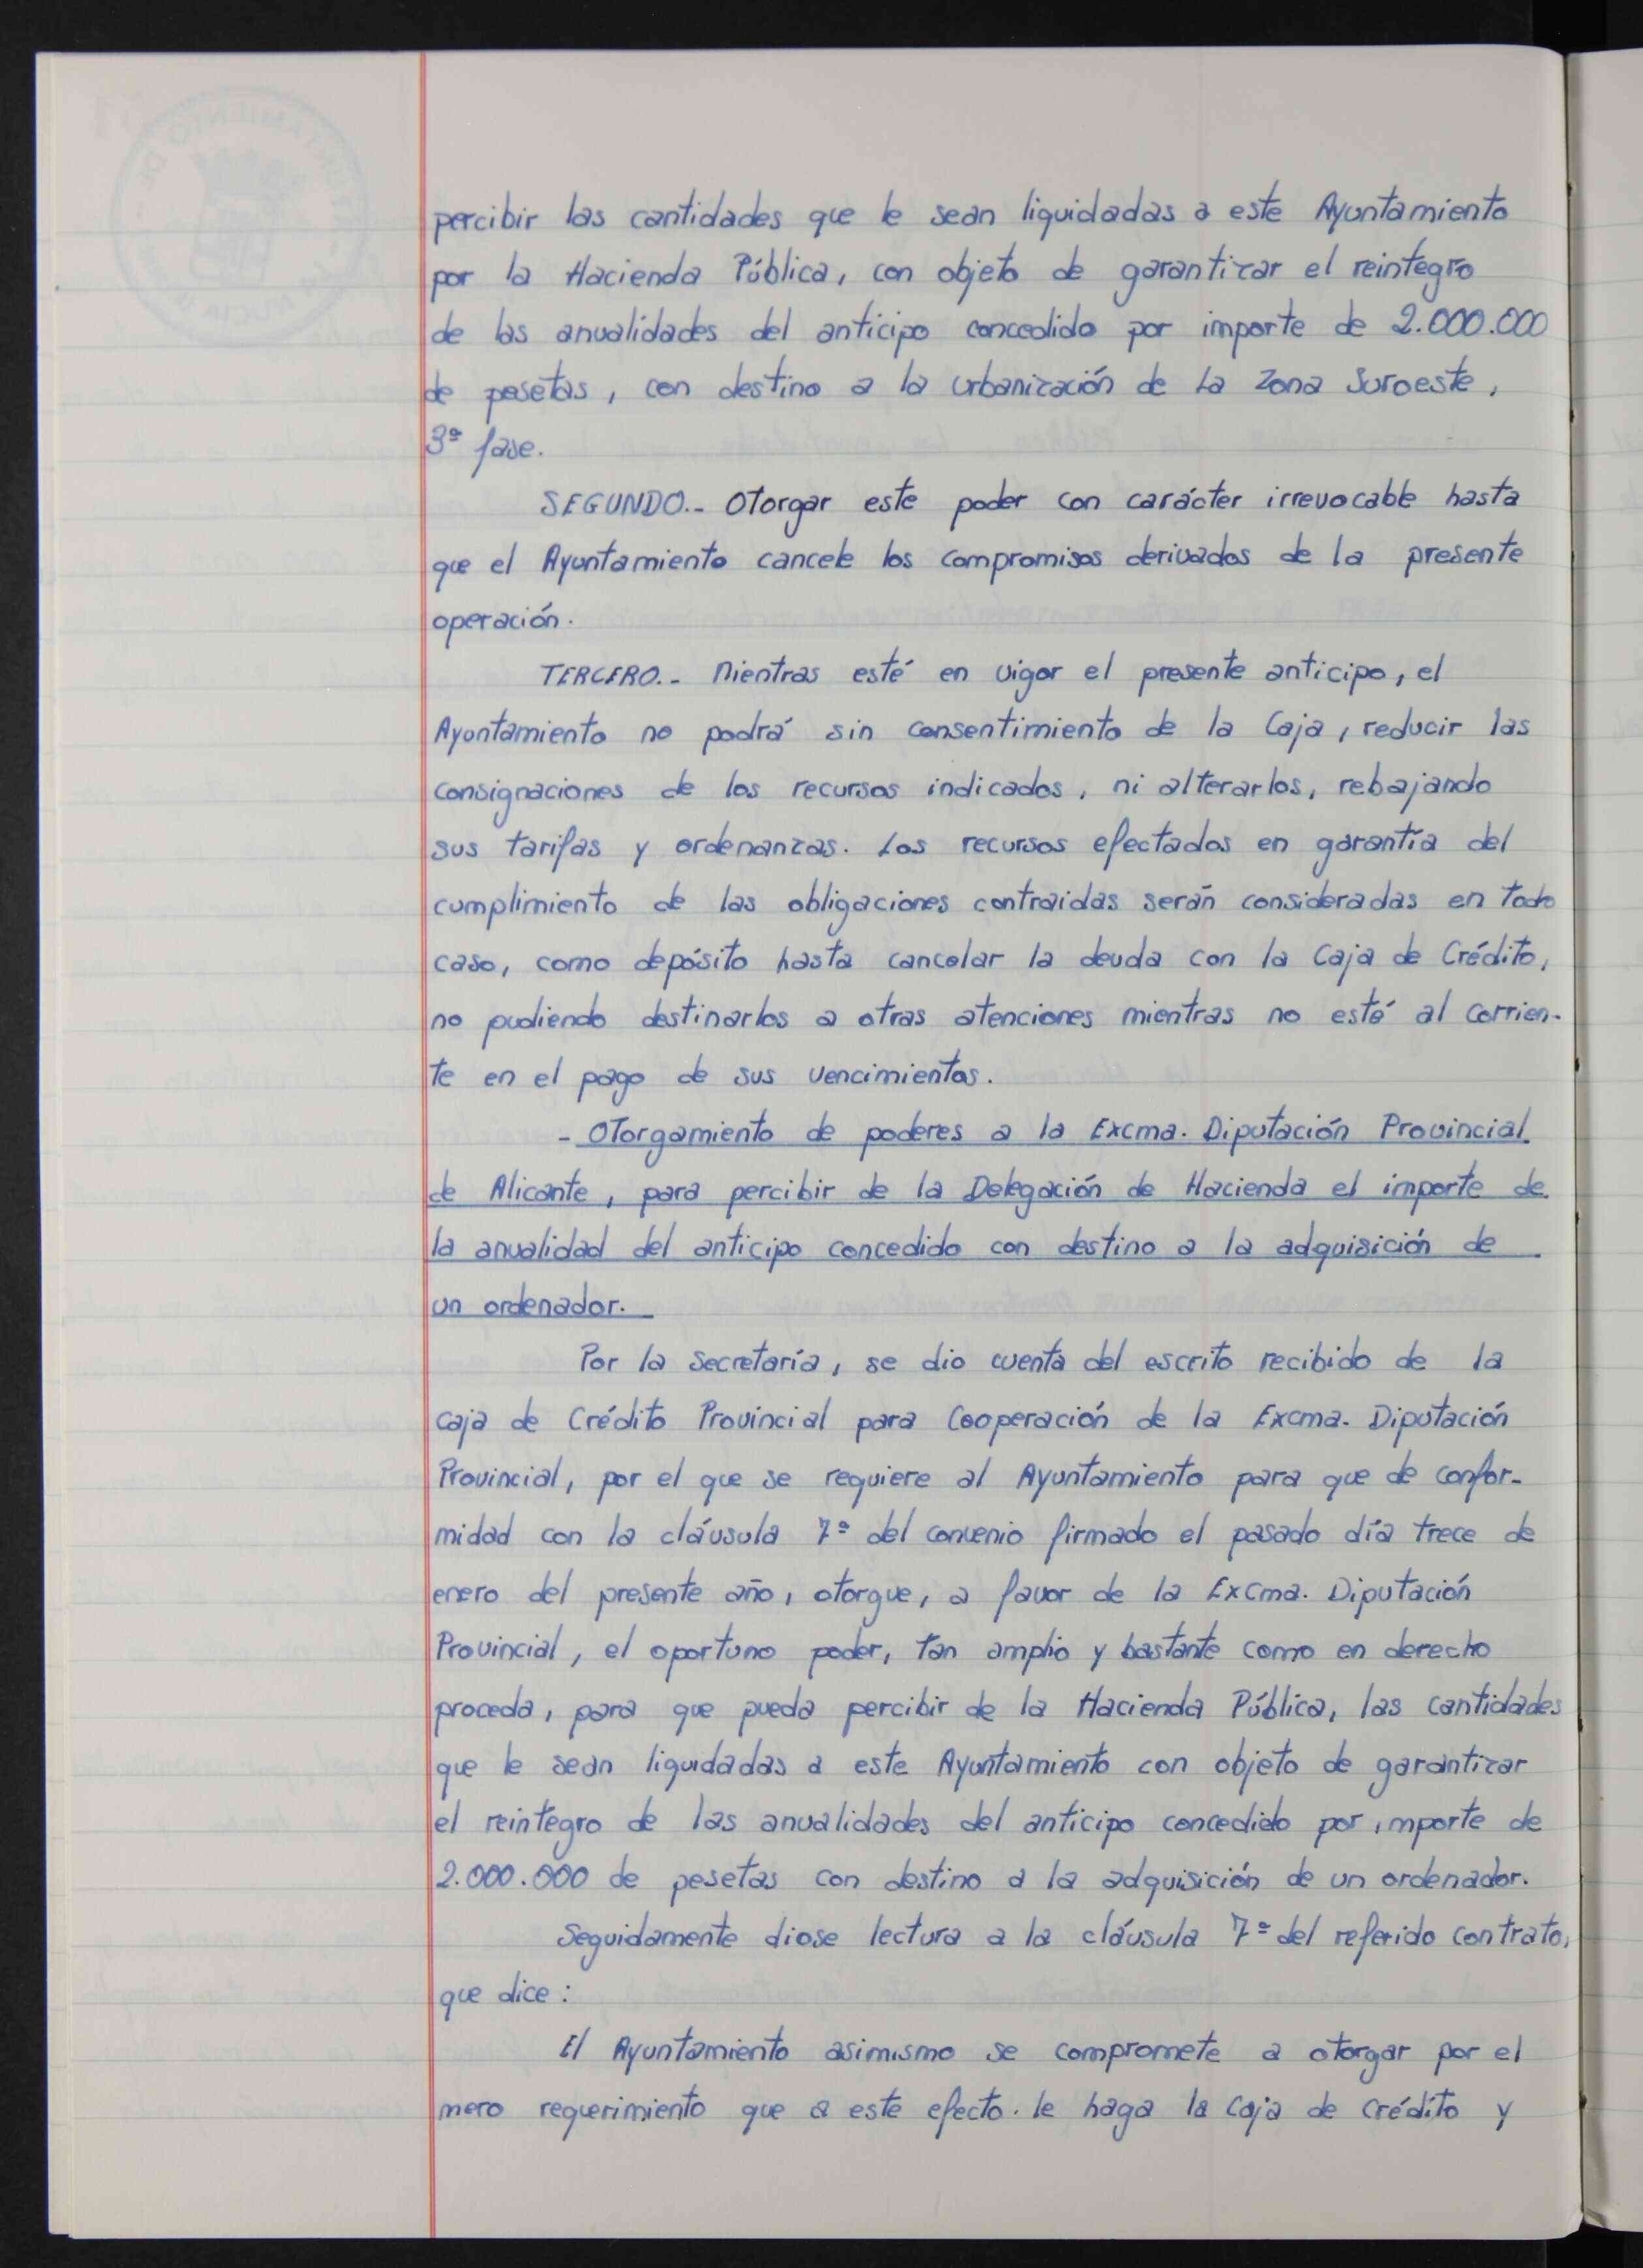 percibir las cantidades que le sean liquidadas a este Ayuntamiento
por la Hacienda Pública, con objeto de garantizar el reintegro
de las anualidades del anticipo concedido por importe de 2.000.000
de pesetas, con destino a la urbanización de La Zona Suroeste,
3ª fase.
SEGUNDO.- Otorgar este poder con carácter irrevocable hasta
que el Ayuntamiento cancele los compromisos derivados de la presente
operación.
TERCERO.- Mientras esté en vigor el presente anticipo, el
Ayuntamiento no podrá sin consentimiento de la Caja, reducir las
consignaciones de los recursos indicados, ni alterarlos, rebajando
sus tarifas y ordenanzas. Los recursos efectados en garantía del
cumplimiento de las obligaciones contraidas serán consideradas en todo
caso, como depósito hasta cancelar la deuda con la Caja de Crédito,
no pudiendo destinarlos a otras atenciones mientras no esté al corrien-
te en el pago de sus vencimientos.
- Otorgamiento de poderes a la Excma. Diputación Provincial
de Alicante, para percibir de la Delegación de Hacienda el importe de
la anualidad del anticipo concedido con destino a la adquisición de
un ordenador.
Por la Secretaría, se dio cuenta del escrito recibido de la
caja de Crédito Provincial para Cooperación de la Excma. Diputación
Provincial, por el que se requiere al Ayuntamiento para que de confor-
midad con la cláusula 7ª del convenio firmado el pasado día trece de
enero del presente año, otorgue, a favor de la Excma. Diputación
Provincial, el oportuno poder, tan amplio y bastante como en derecho
proceda, para que pueda percibir de la Hacienda Pública, las cantidades
que le sean liquidadas a este Ayuntamiento con objeto de garantizar
el reintegro de las anualidades del anticipo concedido por importe de
2.000.000 de pesetas con destino a la adquisición de un ordenador.
Seguidamente diose lectura a la cláusula 7ª del referido contrato,
que dice:
El Ayuntamiento asimismo se compromete a otorgar por el
mero requerimiento que a este efecto le haga la Caja de Crédito y